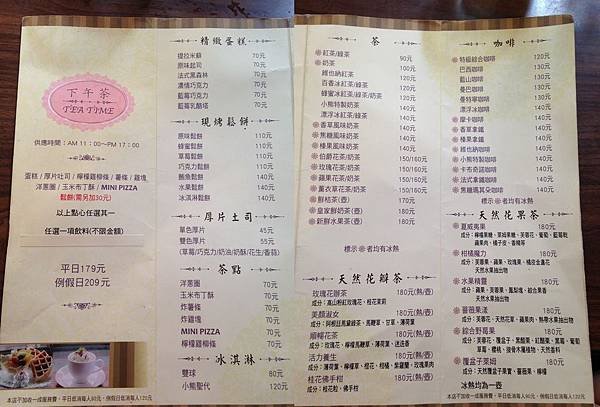 下午茶
TEA TIME
供應時間：AM 11：00～PM 17：00
蛋糕 / 厚片吐司 / 檸檬雞柳條 / 薯條 / 雞塊
洋蔥圈 / 玉米布丁酥 / MINI PIZZA
鬆餅(需另加30元)
以上點心任選其一
任選一項飲料(不限金額)
平日179元
例假日209元
精緻蛋糕
提拉米蘇 70元
原味起司 70元
法式黑森林 70元
濃情巧克力 70元
藍莓巧克力 70元
藍莓乳酪塔 70元
現烤鬆餅
原味鬆餅 110元
蜂蜜鬆餅 110元
草莓鬆餅 110元
巧克力鬆餅 110元
鮪魚鬆餅 140元
水果鬆餅 140元
冰淇淋鬆餅 140元
厚片吐司
單色厚片 45元
雙色厚片 55元
(草莓/巧克力/奶油/奶酥/花生/香蒜)
茶點
洋蔥圈 70元
玉米布丁酥 70元
炸薯條 70元
炸雞塊 70元
MINI PIZZA 70元
檸檬雞柳條 70元
冰淇淋
雙球 80元
小熊聖代 120元
本店不加收一成服務費，平日低消每人90元，例假日低消每人120元
茶
紅茶/綠茶 90元
奶茶 100元
維也納紅茶 120元
百香冰紅茶/綠茶 120元
蜂蜜冰紅茶/綠茶/奶茶 120元
小熊特製奶茶 140元
漂浮冰紅茶/綠茶 140元
香草風味奶茶 140元
焦糖風味奶茶 140元
榛果風味奶茶 140元
伯爵花茶/奶茶 150/160元
玫瑰花茶/奶茶 150/160元
蘋果花茶/奶茶 150/160元
薰衣草花茶/奶茶 150/160元
鮮桔茶(壺) 170元
皇家鮮奶茶(壺) 180元
新鮮水果茶(壺) 180元
標示 者均有冰熱
天然花瓣茶
玫瑰花釀茶 180元(熱/壺)
成分：高山粉紅玫瑰花、桂花茉莉
美顏淑女 180元(熱/壺)
順暢花茶 180元(熱/壺)
活力養生 180元(熱/壺)
桂花佛手柑 180元(熱/壺)
成分：桂花粒、佛手柑
咖啡
特級綜合咖啡 120元
巴西咖啡 130元
藍山咖啡 130元
曼巴咖啡 130元
曼特寧咖啡 130元
漂浮冰咖啡 130元
摩卡咖啡 140元
香草拿鐵 140元
榛果拿鐵 140元
維也納咖啡 140元
小熊特製咖啡 140元
卡布奇諾咖啡 140元
法式拿鐵咖啡 140元
焦糖瑪其朵咖啡 140元
標示 者均有冰熱
天然花果茶
夏威夷果 180元
柑橘魔力 180元
水果精靈 180元
薔薇果漾 180元
綜合野莓果 180元
覆盆子萊姆 180元
冰熱均為一壺
本店不加收一成服務費，平日低消每人90元，例假日低消每人120元